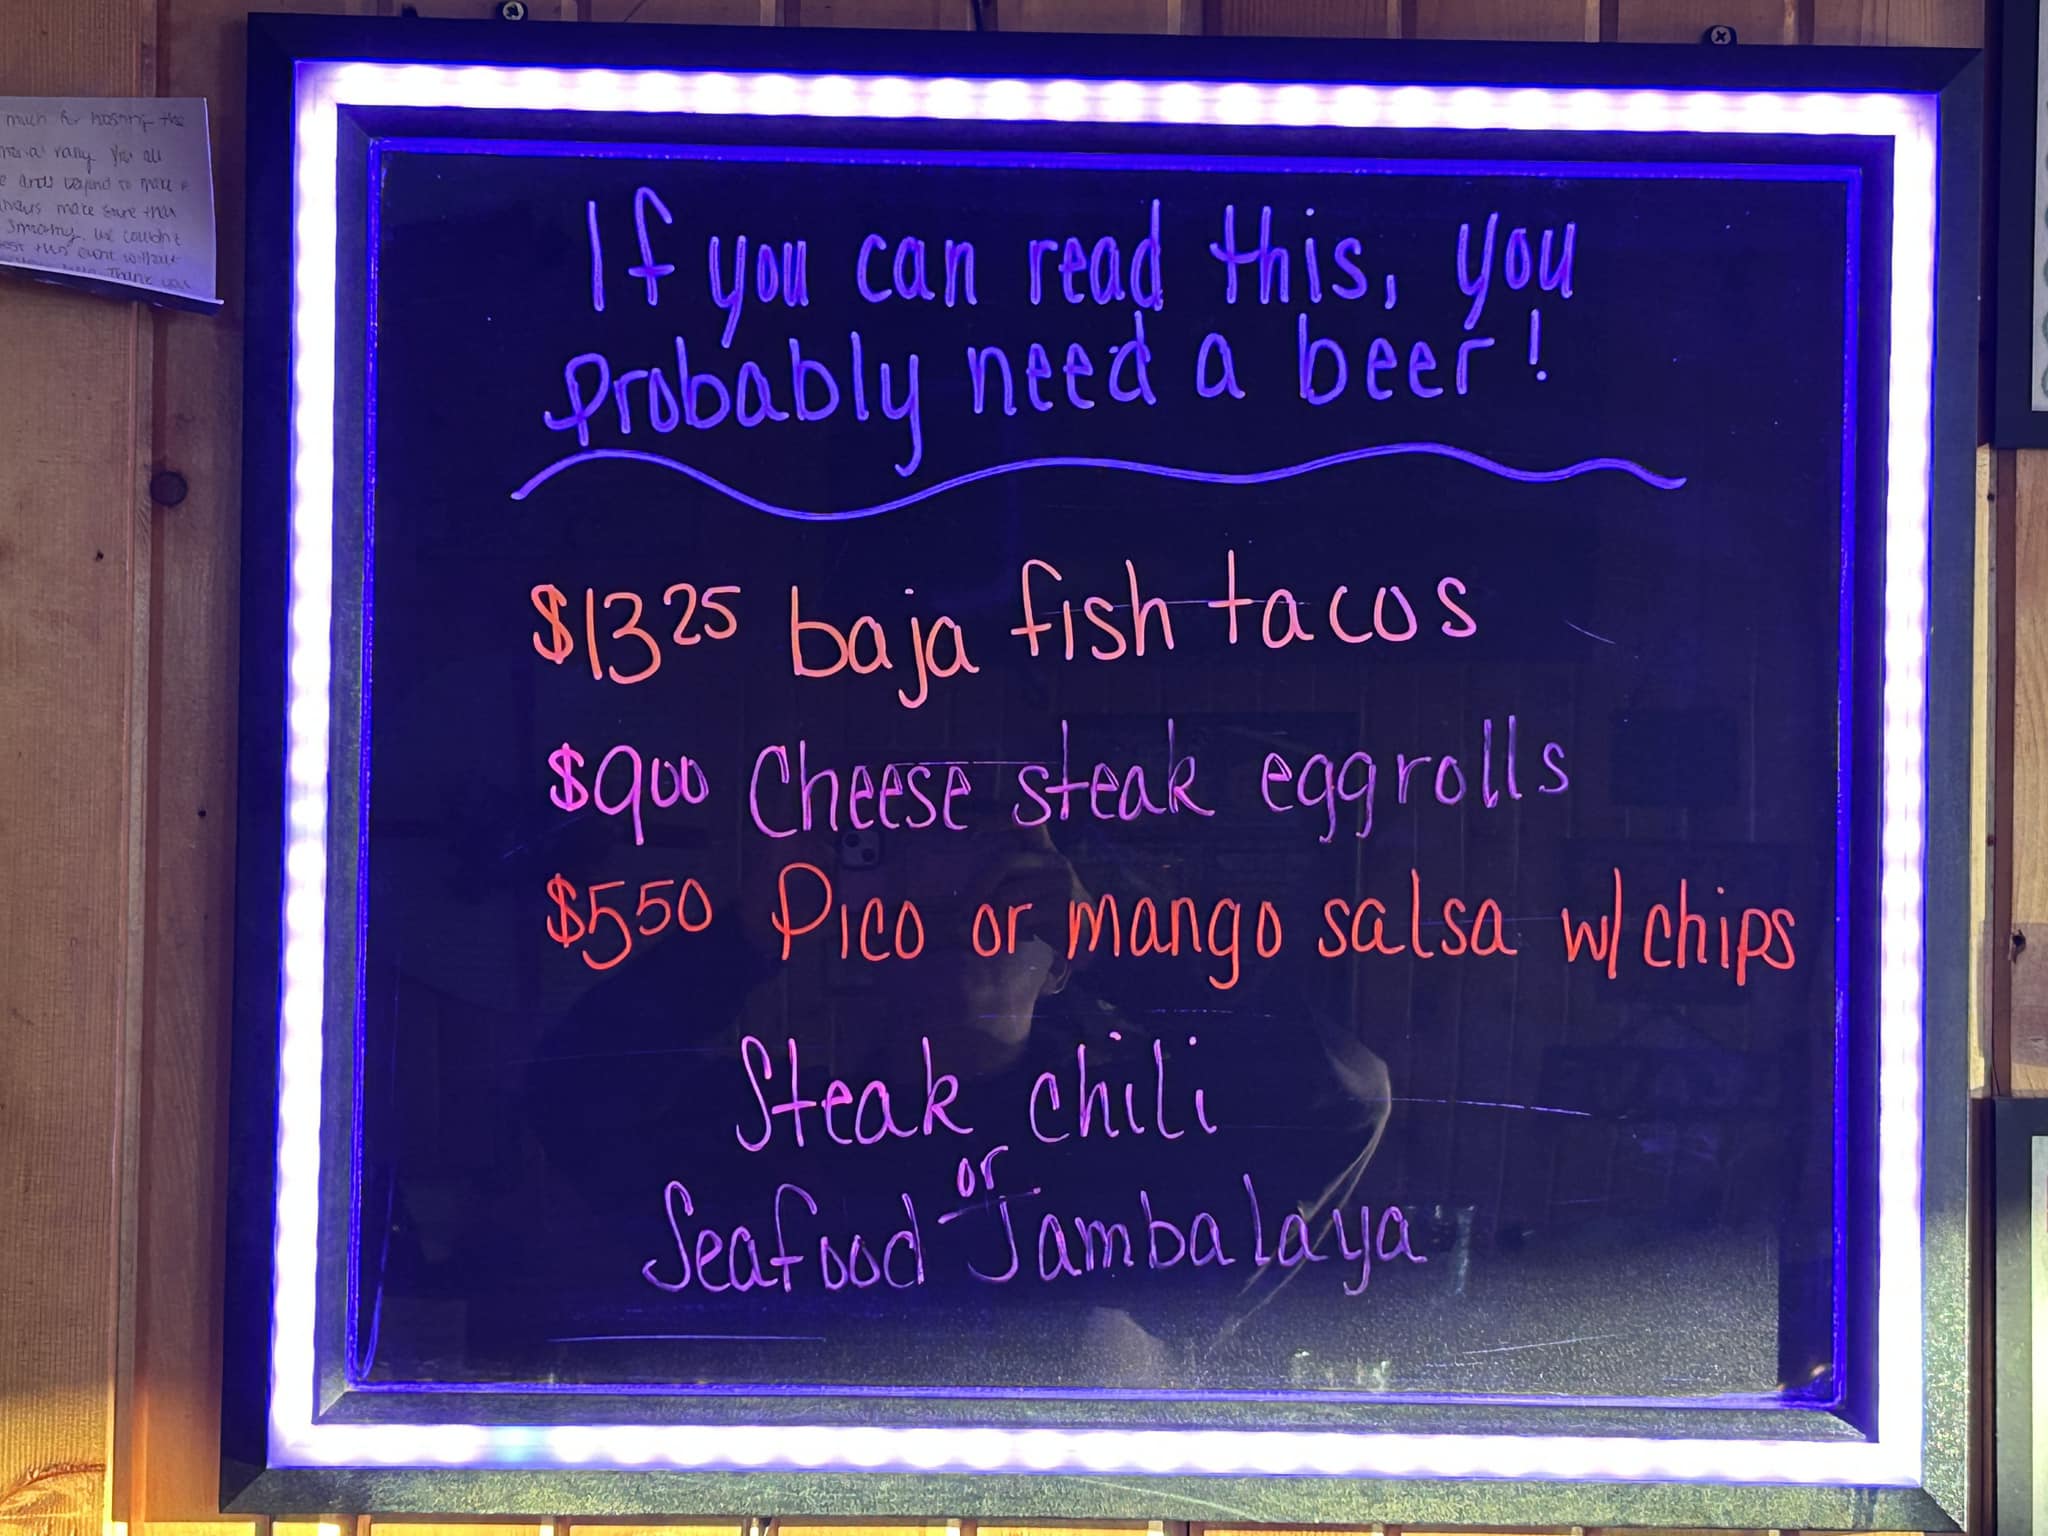 much for hosting the
rally. You all
and beyond to make
make sure that
smoothly. We couldn't
this event without
Thank you
If you can read this, you
probably need a beer!
$13 25 baja fish tacos
$9 00 Cheese steak eggrolls
$5 50 Pico or mango salsa w/ chips
Steak chili
or
Seafood Jambalaya